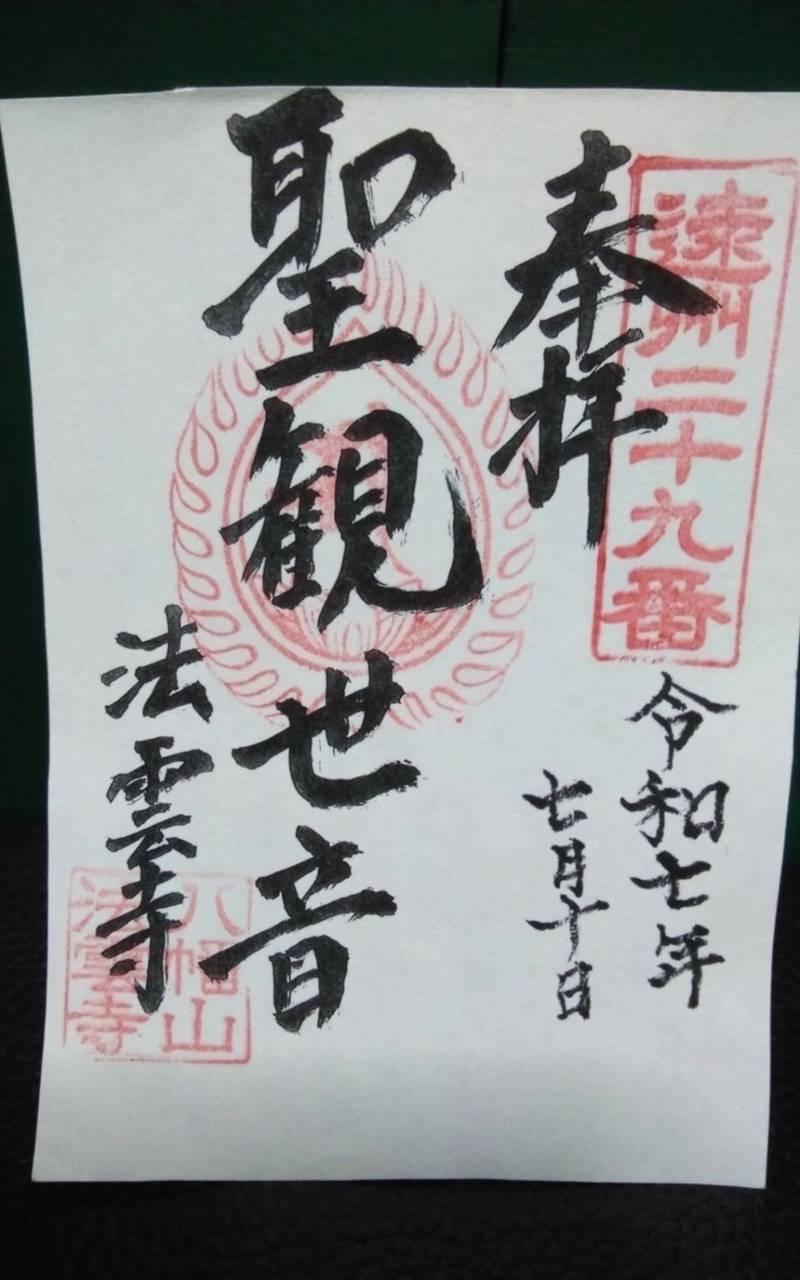 遠州二十九番
奉拝
令和七年
七月十日
聖観世音
法雲寺
八幡山
法雲寺